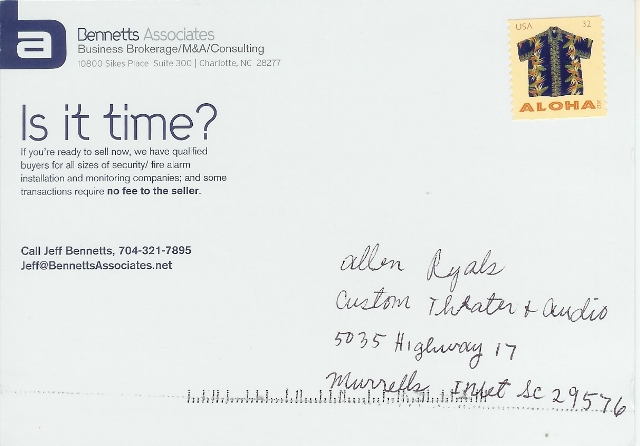 ba
Bennetts Associates
Business Brokerage/M&A/Consulting
10800 Sikes Place Suite 300 | Charlotte, NC 28277
USA 32
ALOHA
Is it time?
If you're ready to sell now, we have qualified
buyers for all sizes of security/ fire alarm
installation and monitoring companies; and some
transactions require no fee to the seller.
Call Jeff Bennetts, 704-321-7895
Jeff@BennettsAssociates.net
Allen Ryals
Custom Theater & Audio
5035 Highway 17
Murrells Inlet SC 29576